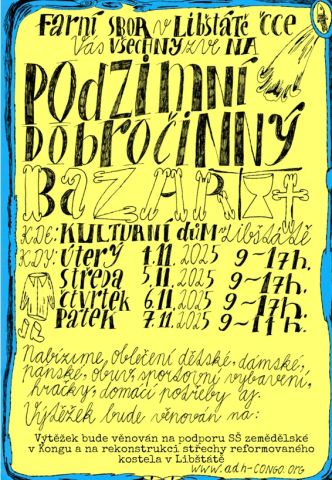 Farní sbor v Libštátě ČCE
Vás všechny zve na
Podzimní
dobročinný
Bazar
KDE: Kulturní dům Libštátě
KDY: Úterý 4.11.2025 9-17h.
Středa 5.11.2025 9-17h.
Čtvrtek 6.11.2025 9-17h.
Pátek 7.11.2025 9-11h.
Nabízíme, oblečení dětské, dámské,
pánské, obuv, sportovní vybavení,
hračky, domácí potřeby aj.
Výtěžek bude věnován na:
Výtěžek bude věnován na podporu SŠ zemědělské
v Kongu a na rekonstrukci střechy reformovaného
kostela v Libštátě
www.adh-congo.org